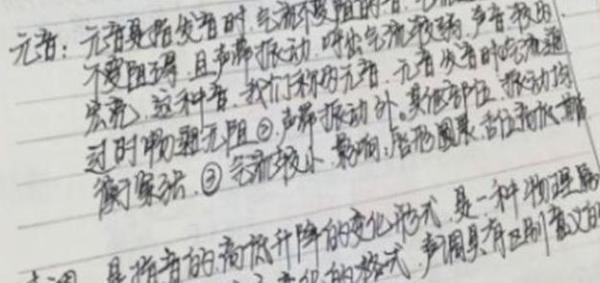 元音：元音是指发音时,气流不受阻的音.
不受阻碍,且声带振动,呼出气流较弱,声音较为
宏亮,这种音,我们称为元音.元音发音时气流通
过时畅通无阻②声带振动外。其他部位,振动均
衡紧张.③气流较小.影响:唇形圆展,舌位高低前
是指音的高低升降的变化形式,是一种物理
变化的格式,声调具有区别意义的